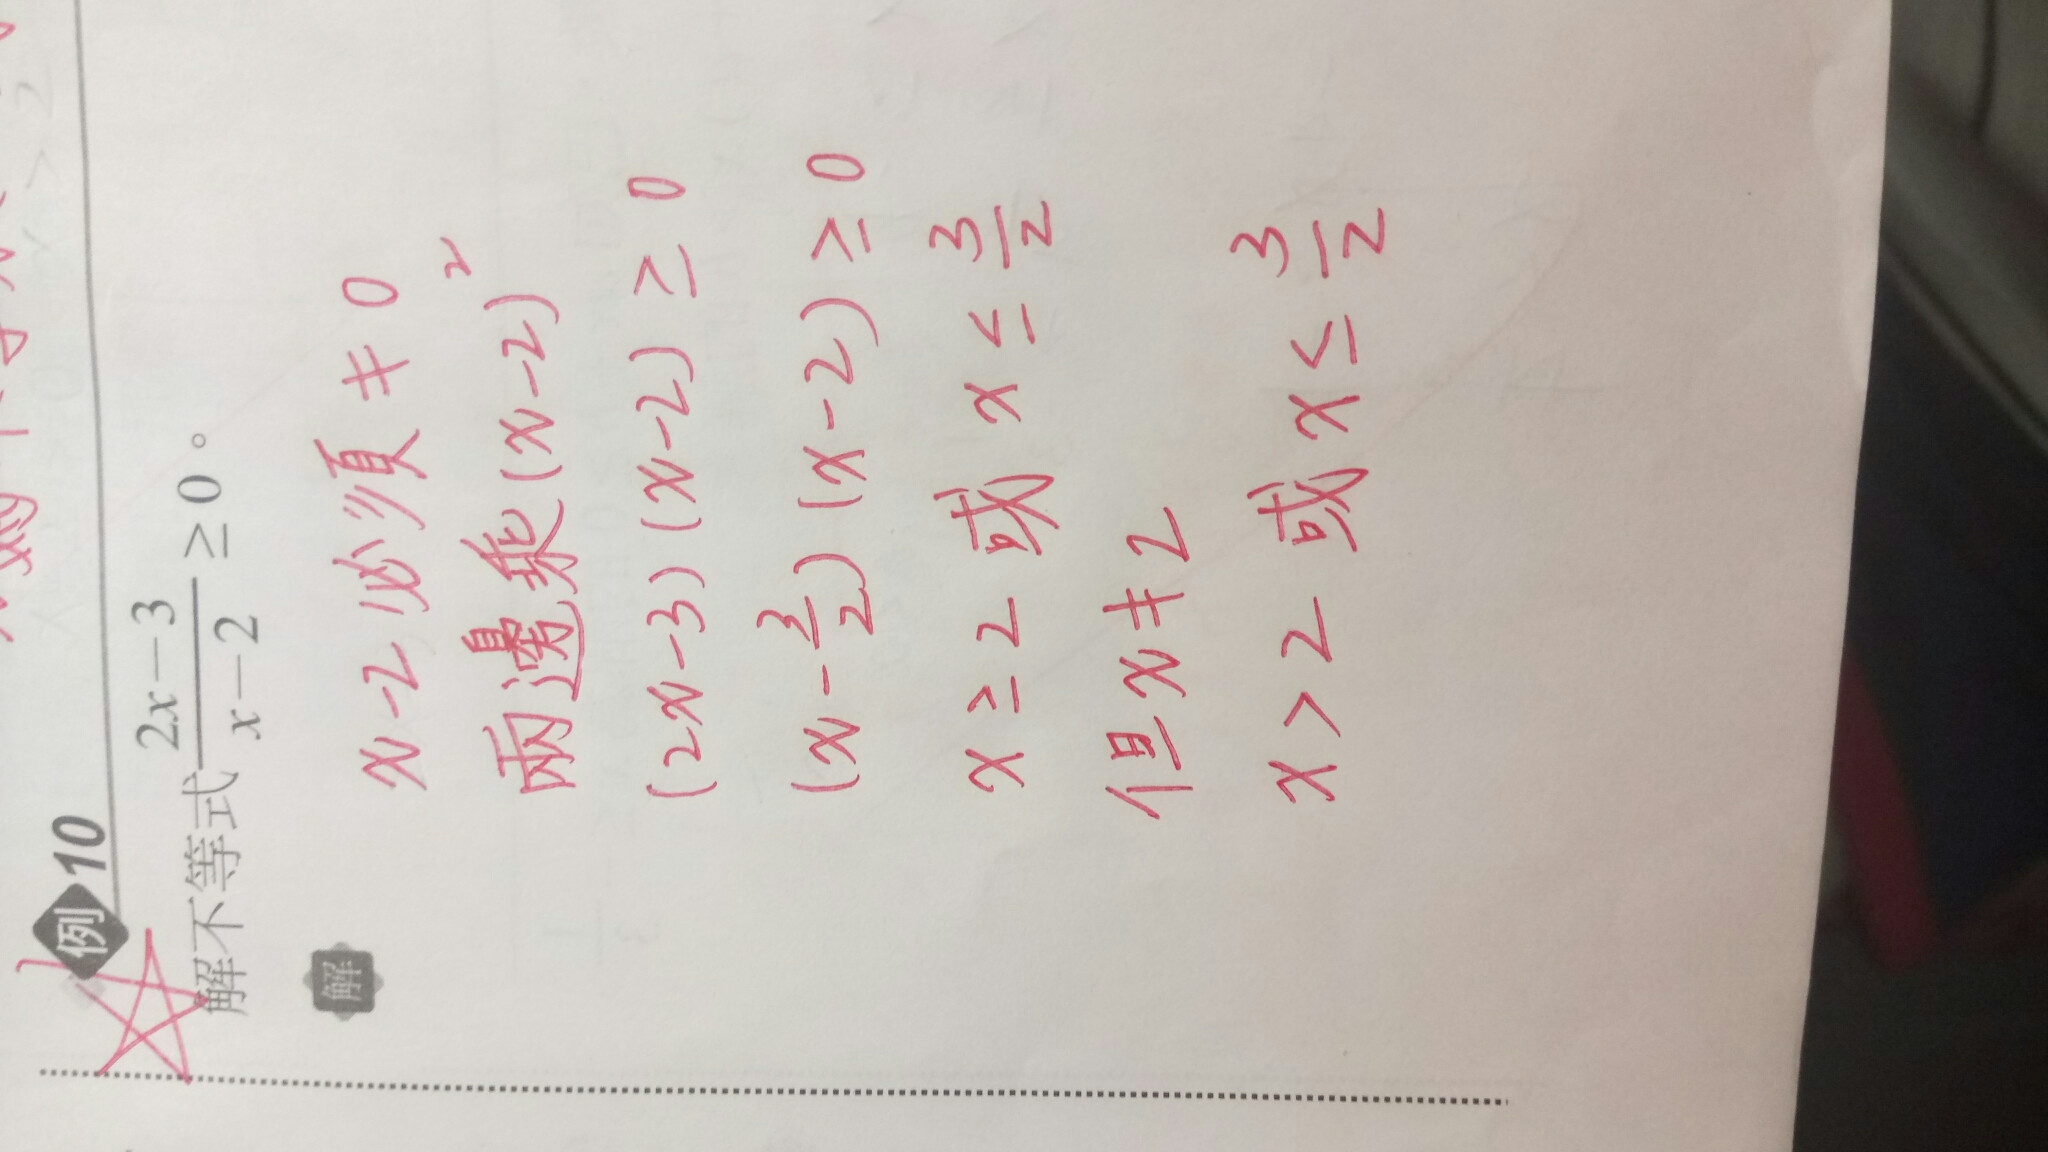 例10
解不等式 \frac{2x-3}{x-2} ≥ 0。
解
x-2必須≠0
兩邊乘(x-2)²
(2x-3)(x-2) ≥ 0
(x-\frac{3}{2})(x-2) ≥ 0
x ≥ 2 或 x ≤ \frac{3}{2}
但 x ≠ 2
x > 2 或 x ≤ \frac{3}{2}